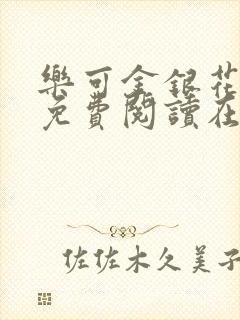 樂可金銀花
免費閱讀在
佐佐木久美子